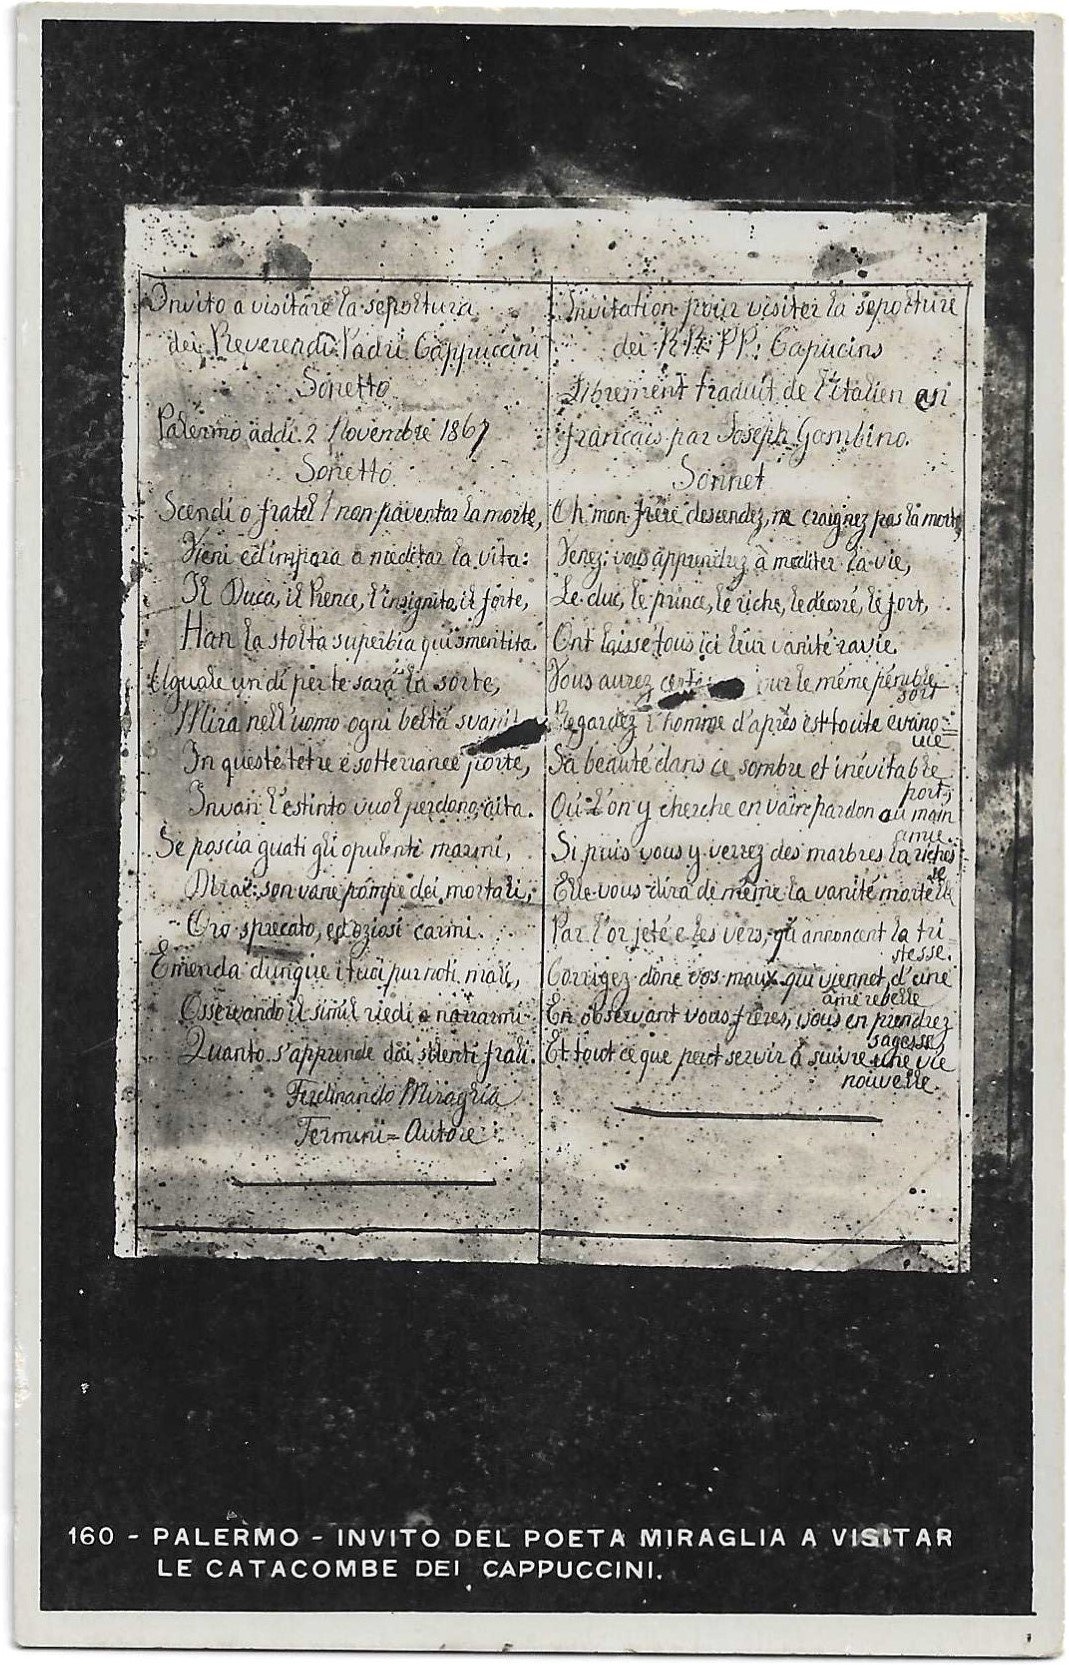 Invito a visitare la sepoltura
dei Reverendi Padri Cappuccini
Sonetto
Palermo addi 2 Novembre 1867
Sonetto.
Scendi o fratel! non paventar la morte,
Vieni ed impara a meditar la vita:
Il Duca, il Prence, l'insignito, il forte,
Han la stolta superbia qui smentita.
Uguale un dì per te sarà la sorte,
Mira nell'uomo ogni beltà
In queste tetre e sotterranee porte,
Invan l'estinto vuol perdono, aita.
Se poscia guati gli opulenti marmi,
Dirai: son vane pompe dei mortali;
Oro sprecato, ed oziosi carmi.
Emenda dunque i tuoi pur noti mali,
Osservando il simil riedi a narrarmi
Quanto s'apprende dai silenti frali.
Ferdinando Miraglia
Termini = Autore
Invitation pour visiter la sepolture
dei RR. PP. Capucins
Librement traduit de l'italien en
français par Joseph Gambino.
Sonnet
Oh mon frère descendez, ne craignez pas la mort,
Venez: vous apprendrez à mediter la vie,
Le duc, le prince, le riche, le décoré, le fort,
Ont laissé tous ici leur vanité ravie.
Vous aurez le même pénible
sort
Regardez l'homme d'après est toute evano=
uie
Sa beauté dans ce sombre et inévitable
port;
Où l'on y cherche en vain pardon ou main
amie.
Si puis vous y verrez des marbres la riches
se
Elle vous dira de même la vanité mortelle
Par l'or jeté e les vers, qui annoncent la tri
stesse.
Corrigez donc vos maux qui viennet d'une
âme rebelle
En observant vous frères, vous en prendrez
sagesse,
Et tout ce que peut servir à suivre une vie
nouvelle.
160 - PALERMO - INVITO DEL POETA MIRAGLIA A VISITAR
LE CATACOMBE DEI CAPPUCCINI.